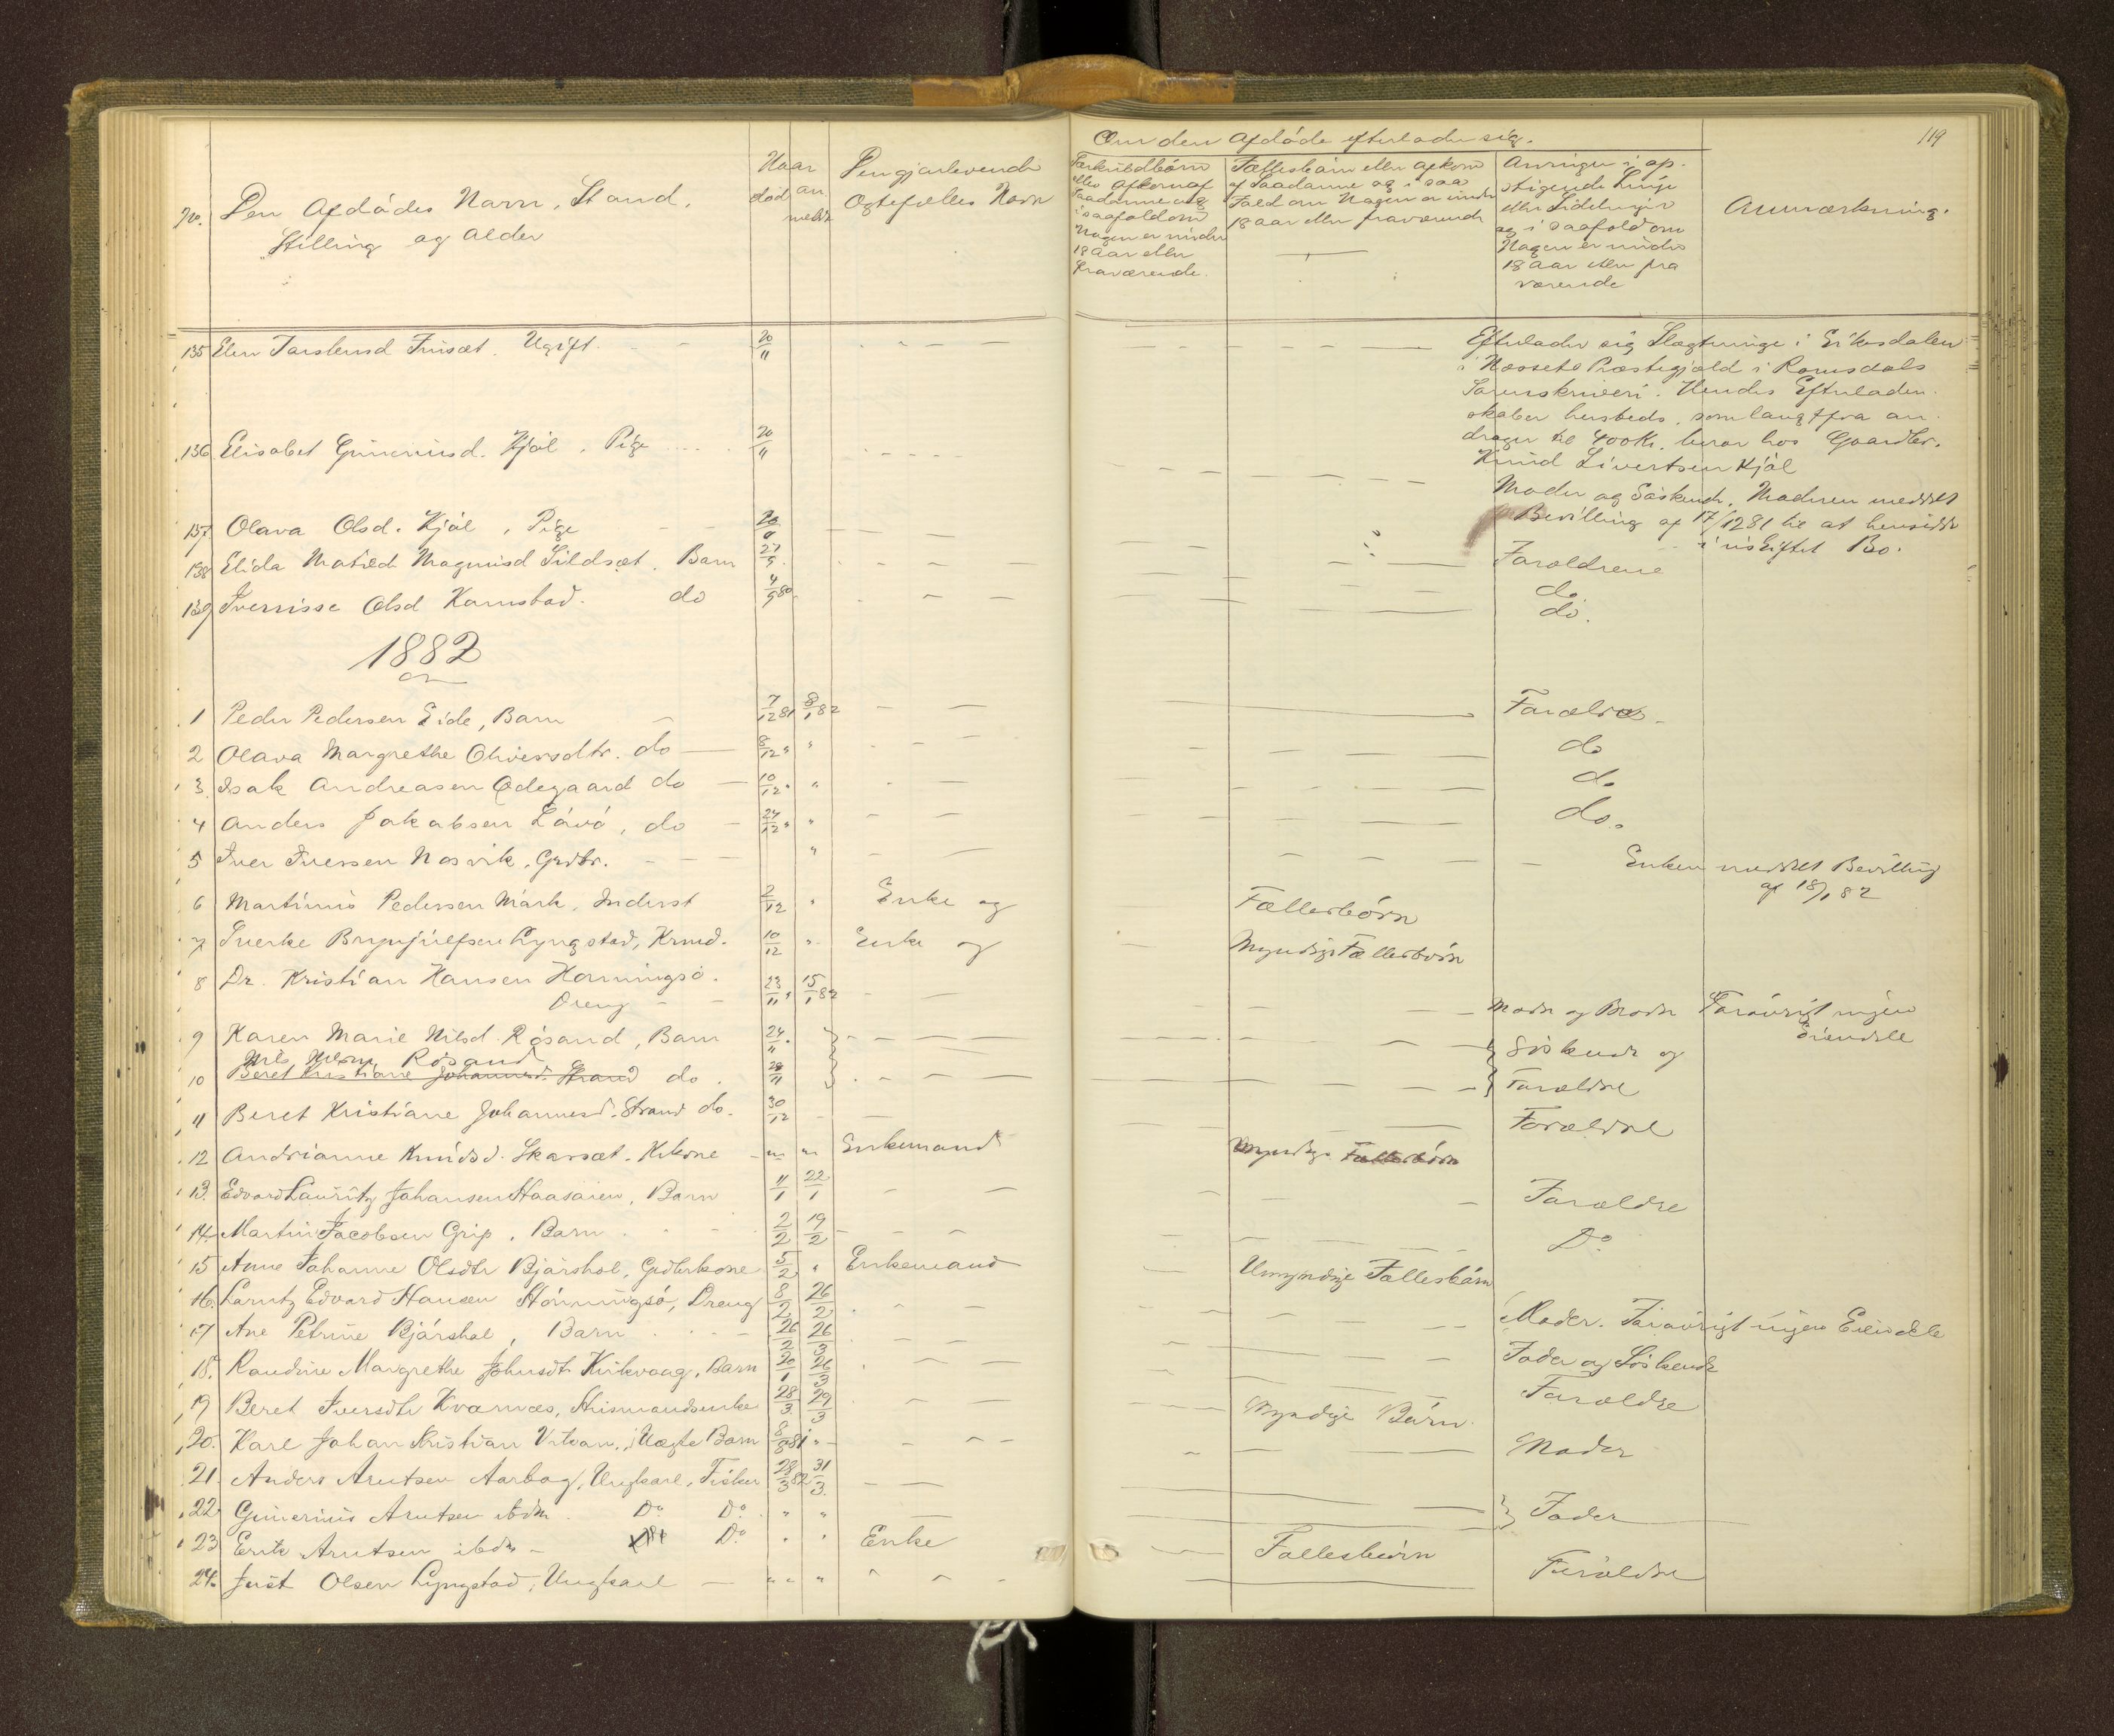 119
No.
Den Afdødes Navn, Stand,
Stilling og Alder
Naar
død
an
meldt
Den gjenlevende
Ægtefælles Navn
Om den Afdøde efterlader sig.
Særkuldbørn
eller Afkom af
Saadanne og
i saafald om
Nogen er under
18 Aar eller
fraværende.
Fællesbørn eller Afkom
af Saadanne og i saa
Fald om Nogen er under
18 aar eller fraværende
Arvinger i op-
stigende Linje
eller Sidelinjer
og i saafald om
Nogen er under
18 Aar eller fra
værende
Anmærkning.
135 Elen Torstensd Friisæt. Ugift. 20/11
Efterlader sig Slægtninge i Eikesdalen
i Næssets Præstegjæld i Romsdals
Sorenskriveri. Hendes Efterladen-
skaber hersteds, som langtfra an-
drager til 400 Kr. beror hos Gaardbr.
Knud Sivertsen Kjøl
136 Elisabet Gunnerusd. Kjøl, Pige 20/11
Moder og Søskende, Moderen meddelt
Bevilling af 17/12 81 til at hensidde
i uskiftet Bo.
137 Olava Olsd. Kjøl, Pige
138 Elida Matild Magnusd Sildsæt. Barn 27/9 Forældrene
139 Iverisse Olsd Karnstad. do 4/9 80 do
do.
1882
1 Peder Pedersen Eide, Barn 7/12 81 8/1 82 Forældre
2 Olava Margrethe Oliversdtr. do 8/12 " " do
3 Isak Andreasen Ødegaard do 10/12 " " do
4 Anders Jakobsen Løvø, do 24/12 " " do.
5 Iver Iversen Nosvik, Grdbr. " Enken meddelt Bevilling
af 18/1 82
6 Martinus Pedersen Mork, Inderst 2/12 " Enke og Fællesbørn
7 Sverke Brynjulfsen Lyngstad, Krmd. 10/12 " Enke og Myndige Fællesbørn
8 Dr. Kristian Hansen Honningsø.
Dreng 23/11 " 15/1 82 Moder og Broder Forøvrigt ingen
Eiendele
9 Karen Marie Nilsd. Røsand, Barn 24/11 Søskende og
Nils Røsand
10 Beret Kristiane Johannesd. Strand do. 28/11 Forældre
11 Beret Kristiane Johannesd. Strand do. 30/12 Forældre
12 Andrianne Knudsd. Skarsæt. Enkemand Fællesbørn
13. Edvard Lauritz Johansen Haasaien, Barn 11/1 22/1 Forældre
14. Martin Jacobsen Grip, Barn 2/2 19/2 Do
15 Anne Johanne Olsdtr Bjørshol, Grdbrkone 5/2 " Enkemand Umyndige Fællesbørn
16. Laritz Edvard Hansen Hønningsø, Dreng 8/2 26/2 Moder. Forøvrigt ingen Eiendele
17 Ane Petrine Bjørshol, Barn 26/2 26/3 Fader og Søskende
18. Randine Margrethe Johnsdtr Kirkvaag, Barn 20/1 26/3 Forældre
19 Beret Iversdtr Kværnæs, Husmandsenke 28/3 29/3 Myndige Børn.
20. Karl Johan Kristian Uægte Barn 8/8 81 " Moder
21. Anders Arntsen Aarbog, Ungkarl, Fisker 28/3 82 31/3.
22. Gunerius Arntsen ibdm. Do Do " " Fader
23 Erik Arntsen ibdm Do. " " Enke Fællesbørn
24. Just Olsen Lyngstad, Ungkarl " " Forældre